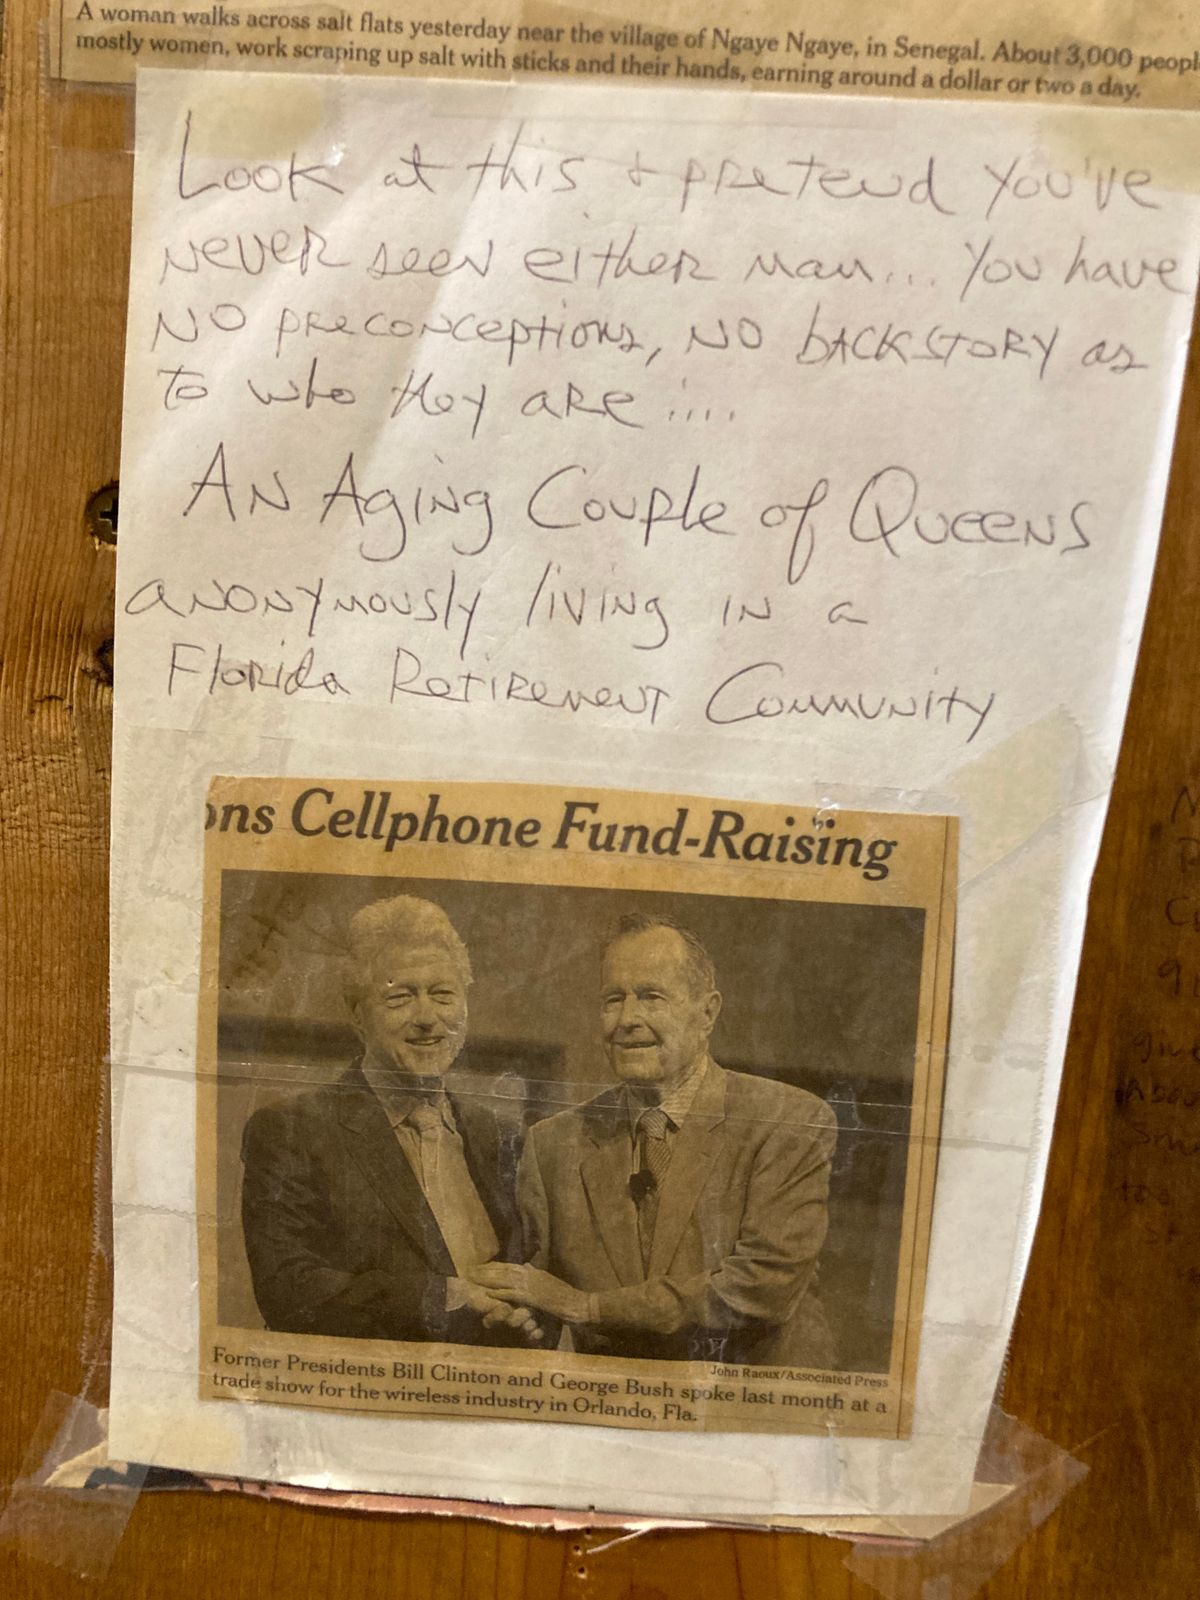 A woman walks across salt flats yesterday near the village of Ngaye Ngaye, in Senegal. About 3,000 peopl
mostly women, work scraping up salt with sticks and their hands, earning around a dollar or two a day.
Look at this + pretend you've
never seen either man... You have
NO preconceptions, NO backstory as
to who they are....
An Aging Couple of Queens
anonymously living in a
Florida Retirement Community
ons Cellphone Fund-Raising
John Raoux/Associated Press
Former Presidents Bill Clinton and George Bush spoke last month at a
trade show for the wireless industry in Orlando, Fla.